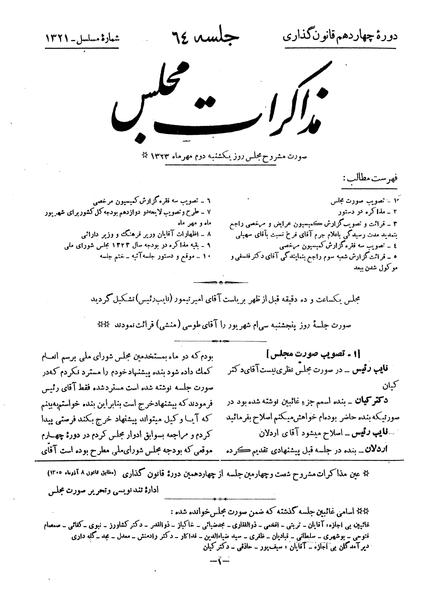 دورهٔ چهاردهم قانون‌گذاری
جلسه ۶۴
شمارهٔ مسلسل ـ ۱۳۲۱
مذاکرات مجلس
صورت مشروح مجلس روز یکشنبه دوم مهرماه ۱۳۲۳ *
فهرست مطالب:
۱ ـ تصویب صورت مجلس
۲ ـ مذاکره در دستور
۳ ـ قرائت و تصویب گزارش کمیسیون عرایض و مرخصی راجع
بتمدید مدت رسیدگی باعلام جرم آقای فرخ نسبت بآقای سهیلی
۴ ـ تصویب سه فقره گزارش کمیسیون مرخصی
۵ ـ قرائت گزارش شعبه سوم راجع بنمایندگی آقای دکتر فلسفی و
موکول شدن ببعد
۶ ـ تصویب سه فقره گزارش کمیسیون مرخصی
۷ ـ طرح و تصویب لایحه دو دوازدهم بودجه کل کشور برای شهریور
ماه و مهر ماه
۸ ـ اظهارات آقایان وزیر فرهنگ و وزیر دارائی
۹ ـ بقیه مذاکره در بودجه سال ۱۳۲۳ مجلس شورای ملی
۱۰ ـ موقع و دستور جلسه آتیه ـ ختم جلسه
مجلس یکساعت و ده دقیقه قبل از ظهر بریاست آقای امیرتیمور (نایب رئیس) تشکیل گردید
صورت جلسهٔ روز پنجشنبه سی‌ام شهریور را آقای طوسی (منشی) قرائت نمودند **
[ ۱ ـ تصویب صورت مجلس ]
نایب رئیس ـ در صورت مجلس نظری نیست؟ آقای دکتر
کیان
دکتر کیان ـ بنده اسمم جزء غائبین نوشته شده بود در
صورتیکه بنده حاضر بوده‌ام خواهش میکنم اصلاح بفرمائید
نایب رئیس ـ اصلاح میشود آقای اردلان
اردلان ـ بنده در جلسه قبل پیشنهادی تقدیم کرده
بودم که دو ماه بمستخدمین مجلس شورای ملی برسم انعام
کمک داده شود بنده پیشنهاد خودم را مسترد نکردم که در
صورت جلسه نوشته شده است مسترد شده فقط آقای رئیس
فرمودند که پیشنهاد خرج است بنابراین بنده خواستم ببینم
که آیا وکیل میتواند پیشنهاد خرج بکند فرصتی پیدا
کردم و مراجعه بسوابق ادوار مجلس کردم در دورهٔ چهارم
موقعی که بودجه مجلس شورای ملی مطرح بوده است آقای
* عین مذاکرات مشروح شصت و چهارمین جلسه از چهاردهمین دورهٔ قانون گذاری (مطابق قانون ۸ آذرماه ۱۳۰۵)
ادارهٔ تندنویسی و تحریر صورت مجلس
** اسامی غائبین جلسه گذشته که ضمن صورت مجلس خوانده شده:
غائبین بی اجازه، آقایان ـ
دیرآمدگان بی اجازه ـ آقایان: سیف‌پور ـ حاذقی ـ دکتر کیان
ـ۱ـ